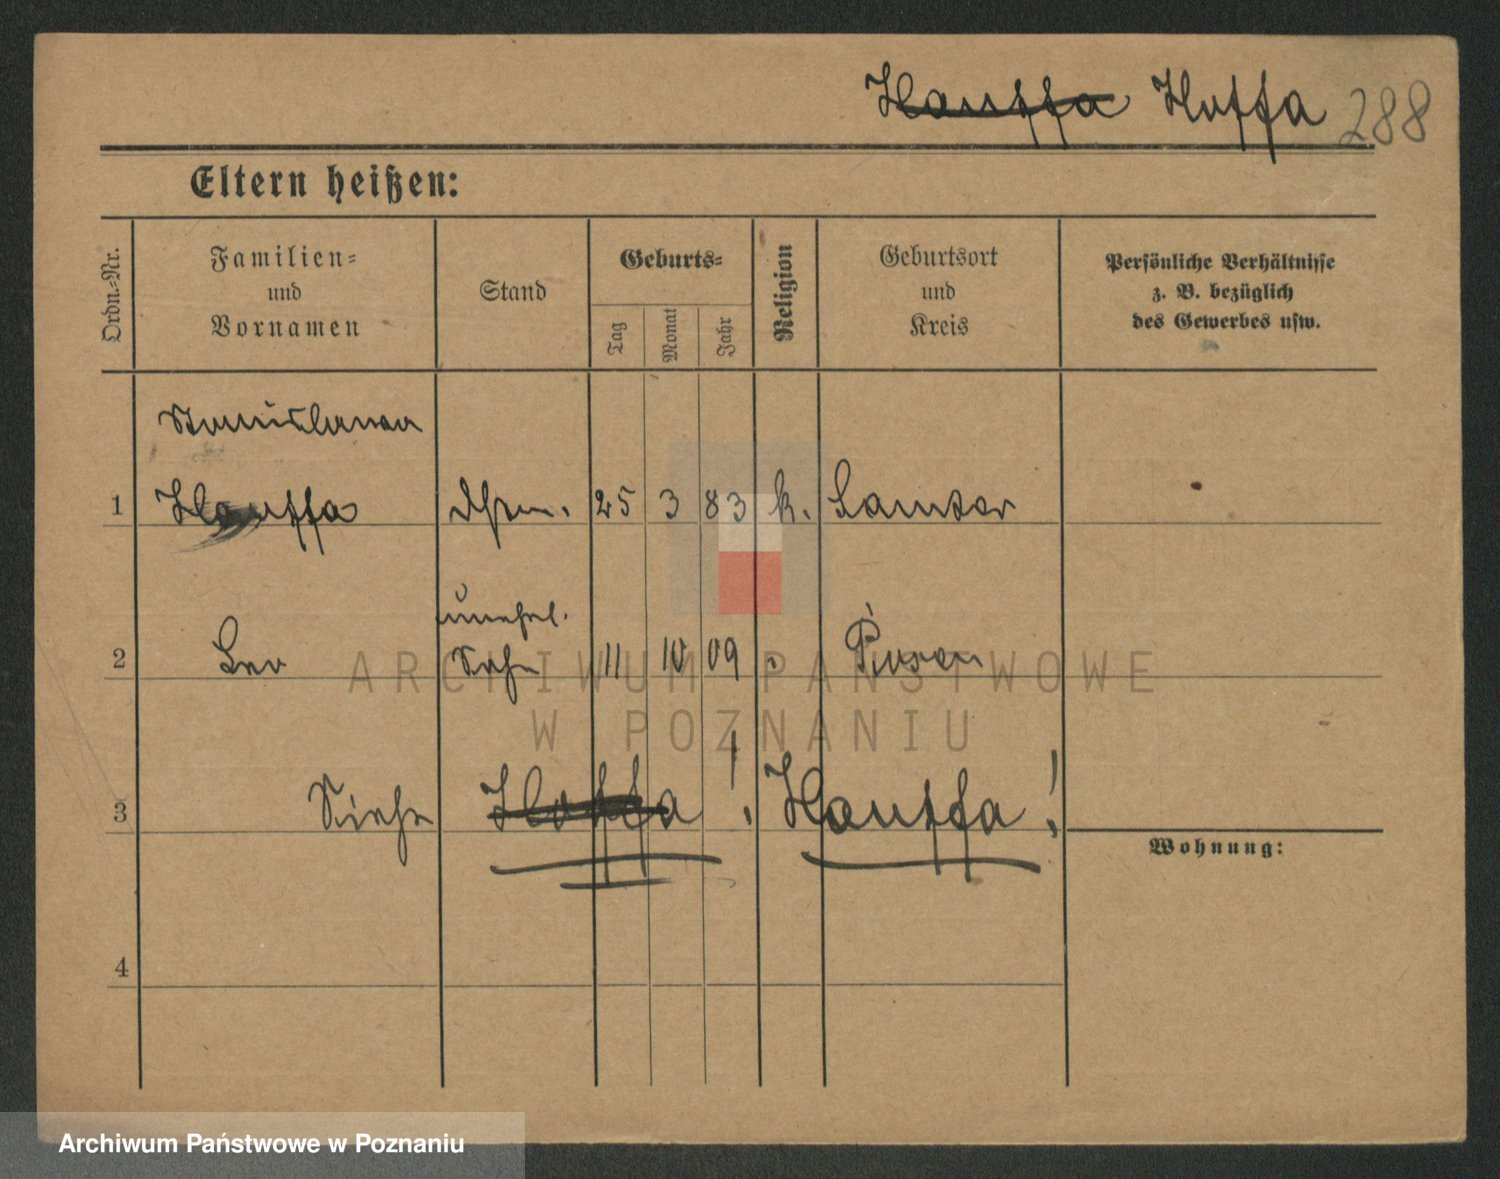 Hauffa Hoffa 288
Eltern heißen:
Ordn.-Nr.
Familien-
und
Vornamen
Stand
Geburts-
Tag
Monat
Jahr
Religion
Geburtsort
und
Kreis
Persönliche Verhältnisse
z. B. bezüglich
des Gewerbes usw.
Stanislawa
1 Hauffa 25 3 83 k. Samter
unehel.
2 Leo Sohn 11 10 09 Posen
3 Siehe Hoffa! Hauffa!
Wohnung:
4
ARCHIWUM PAŃSTWOWE
W POZNANIU
Archiwum Państwowe w Poznaniu